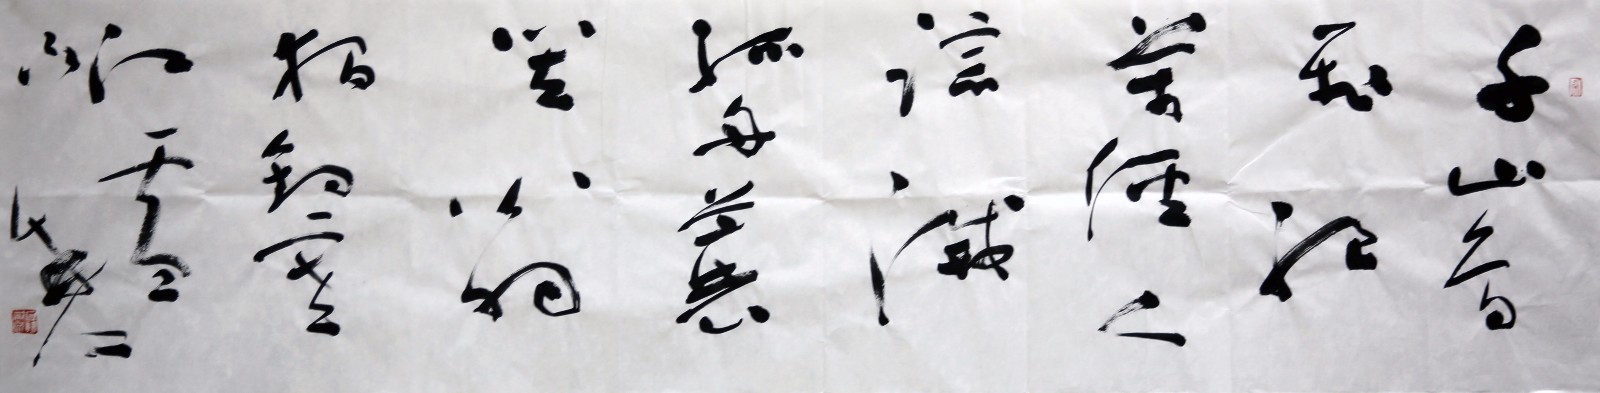 千山鸟
飛绝
萬徑人
踪滅
孤舟蓑
笠翁
独釣寒
江雪